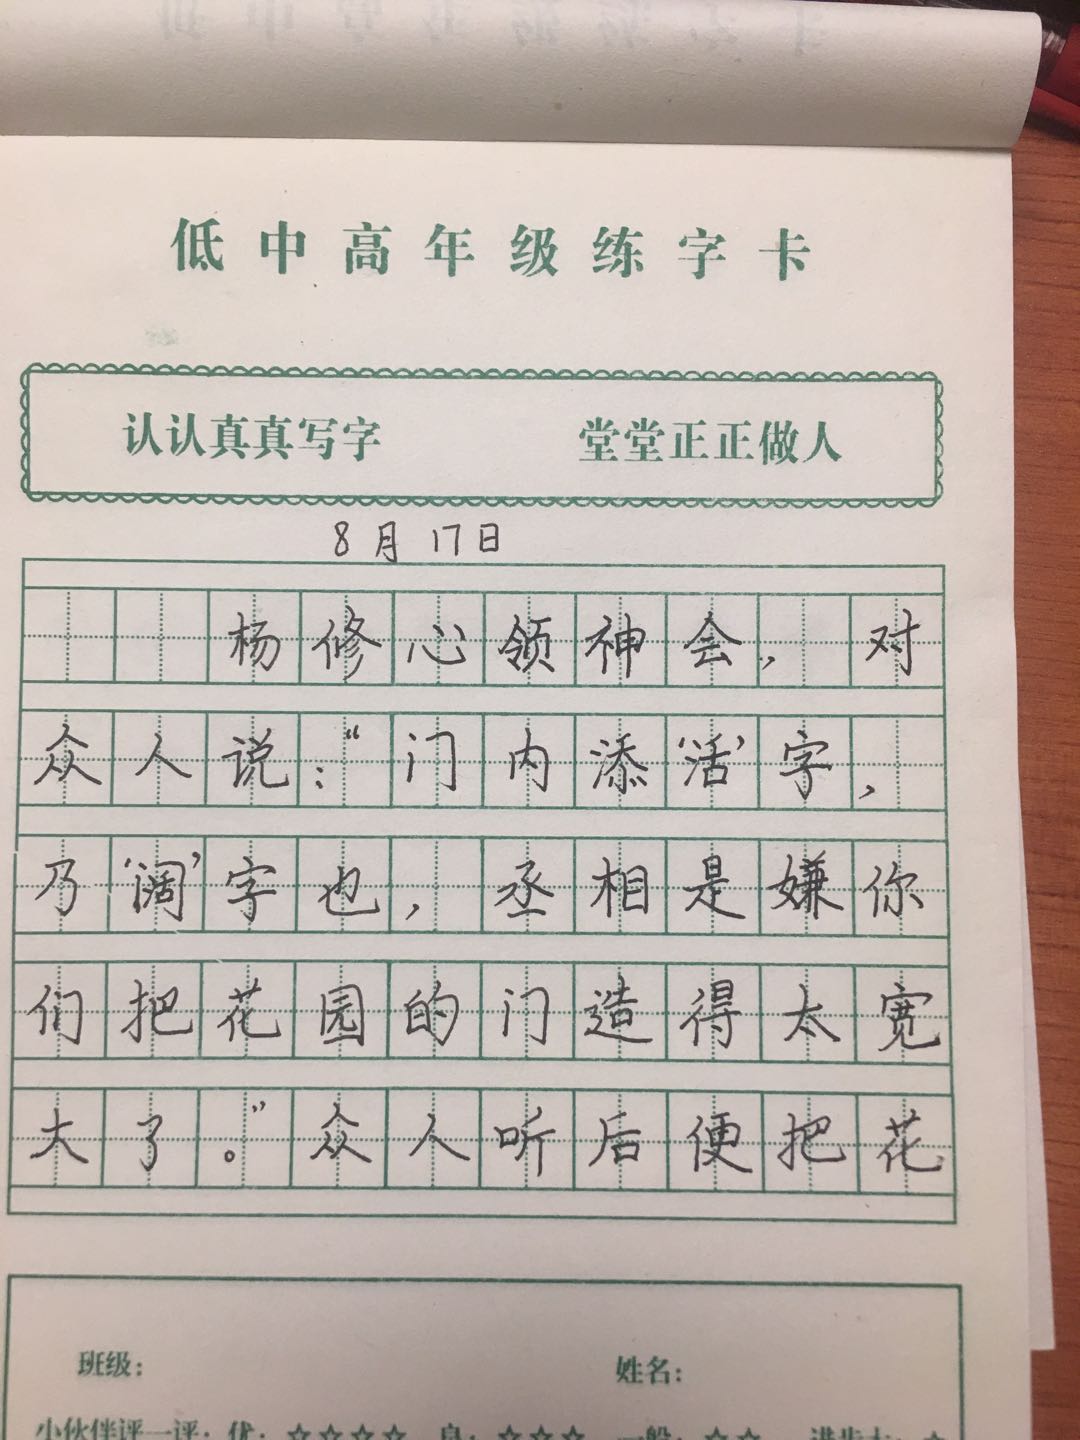 低中高年级练字卡
认认真真写字 堂堂正正做人
8月17日
杨修心领神会，对
众人说：“门内添‘活’字，
乃‘阔’字也，丞相是嫌你
们把花园的门造得太宽
大了。”众人听后便把花
班级： 姓名：
小伙伴评一评：优：☆☆☆☆ 良：☆☆☆ 一般：☆☆ 进步大：☆